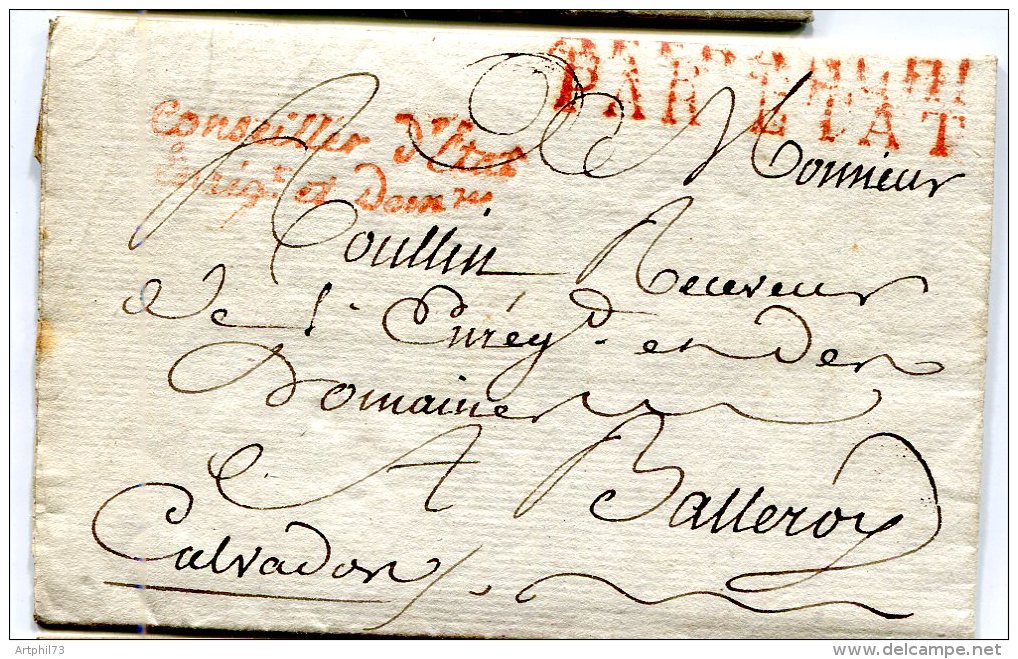 PAR ETAT
Conseiller d'Etat
Enrég.t et Dom.nes
A Monsieur
Toullin Receveur
de l'Enrég.t et des
Domaines
A Balleroy
Calvados
Artphil73
delcampe.net